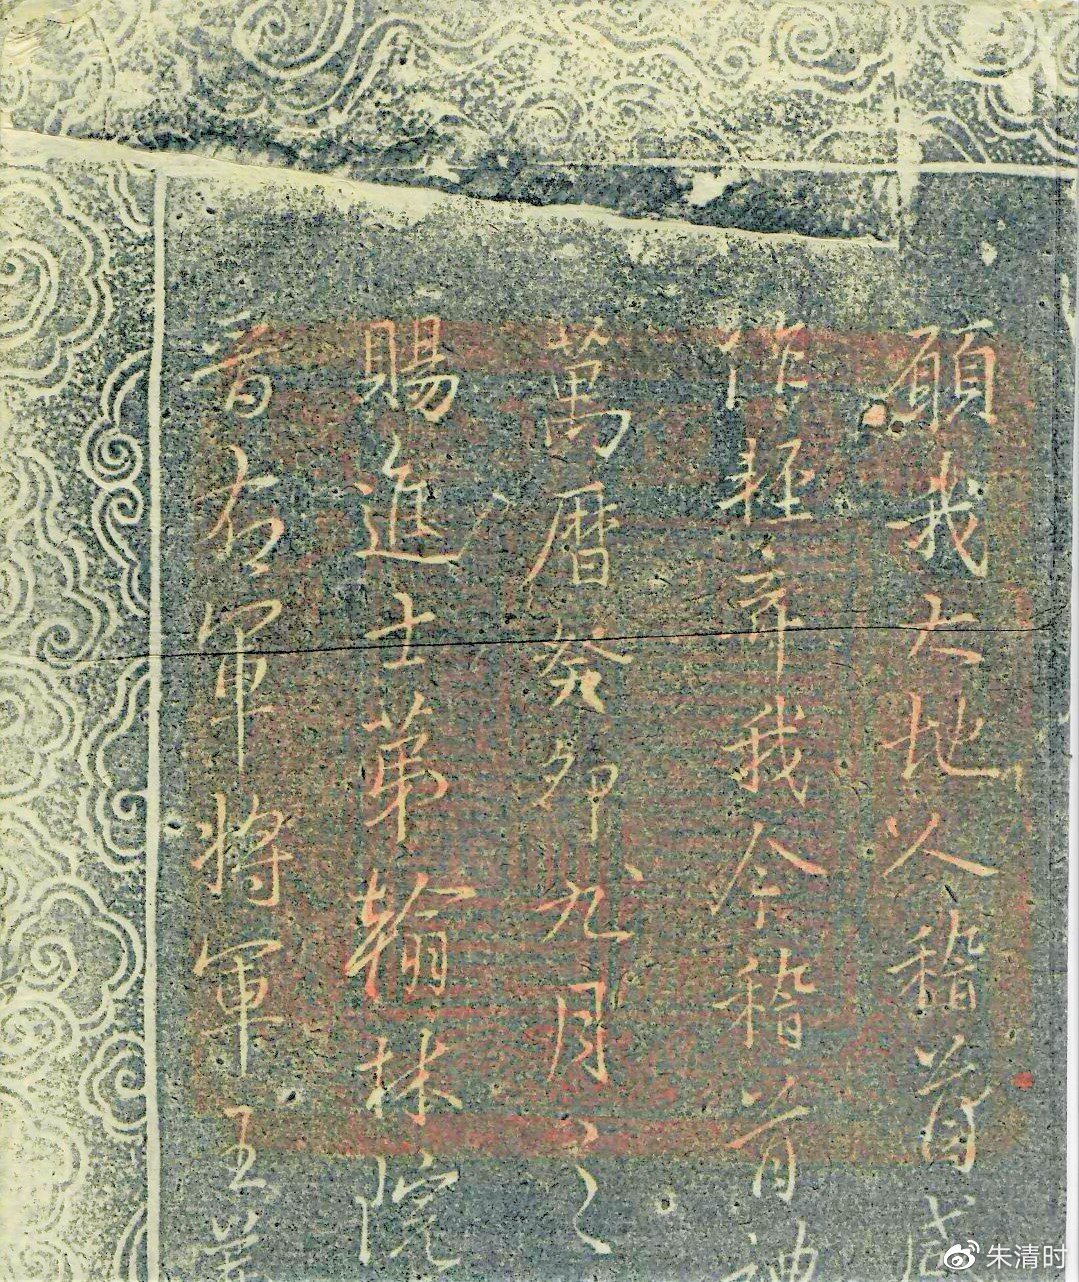 願我大地人稽首咸
作拯弃我今稽首禮
萬曆癸卯九月之
賜進士第翰林院
晉右軍將軍王羲
朱清时